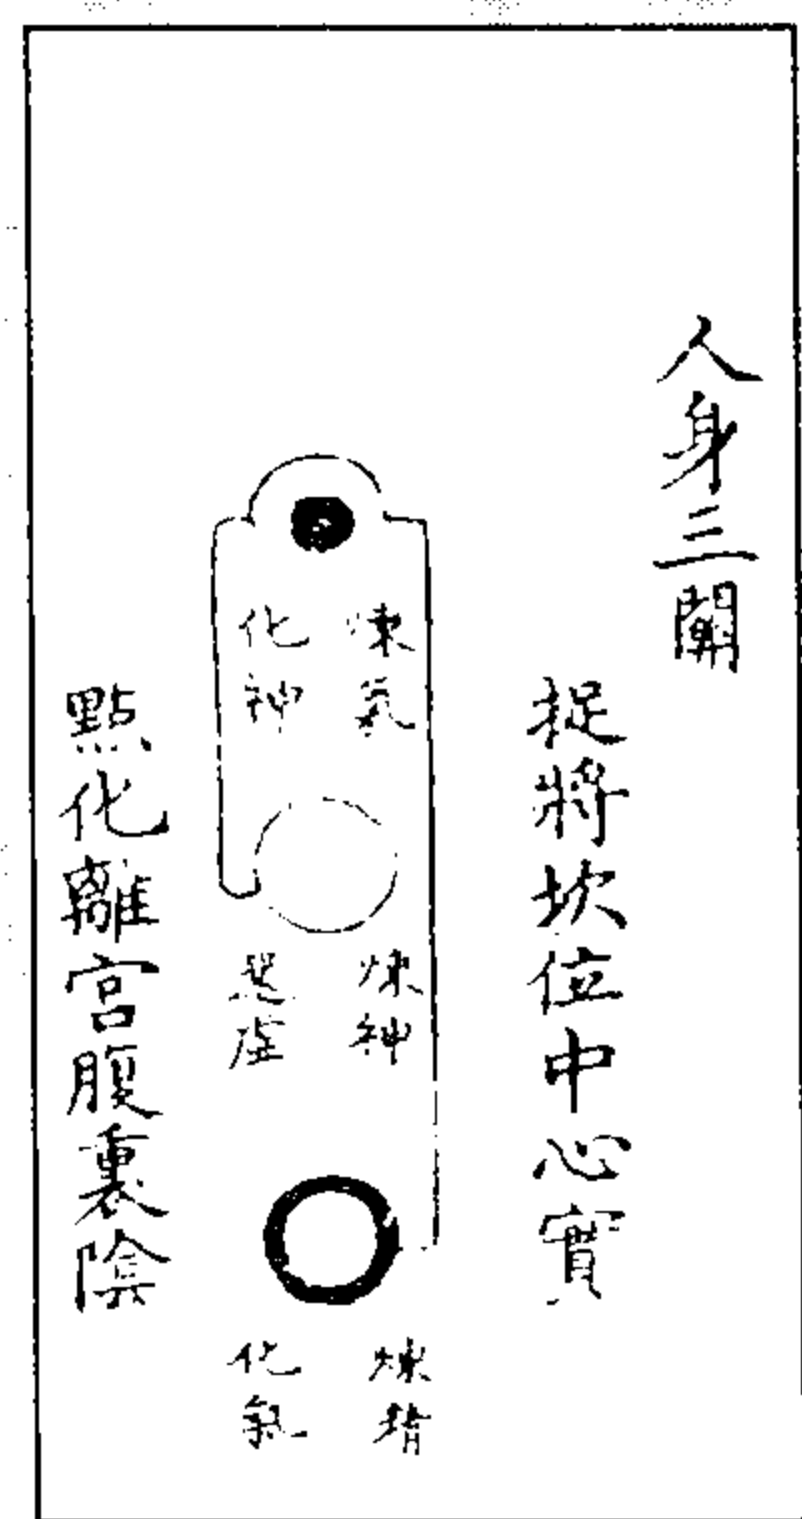 人身三關
捉將坎位中心實
煉氣
化神
煉神
還虛
煉精
化氣
點化離宮腹裏陰